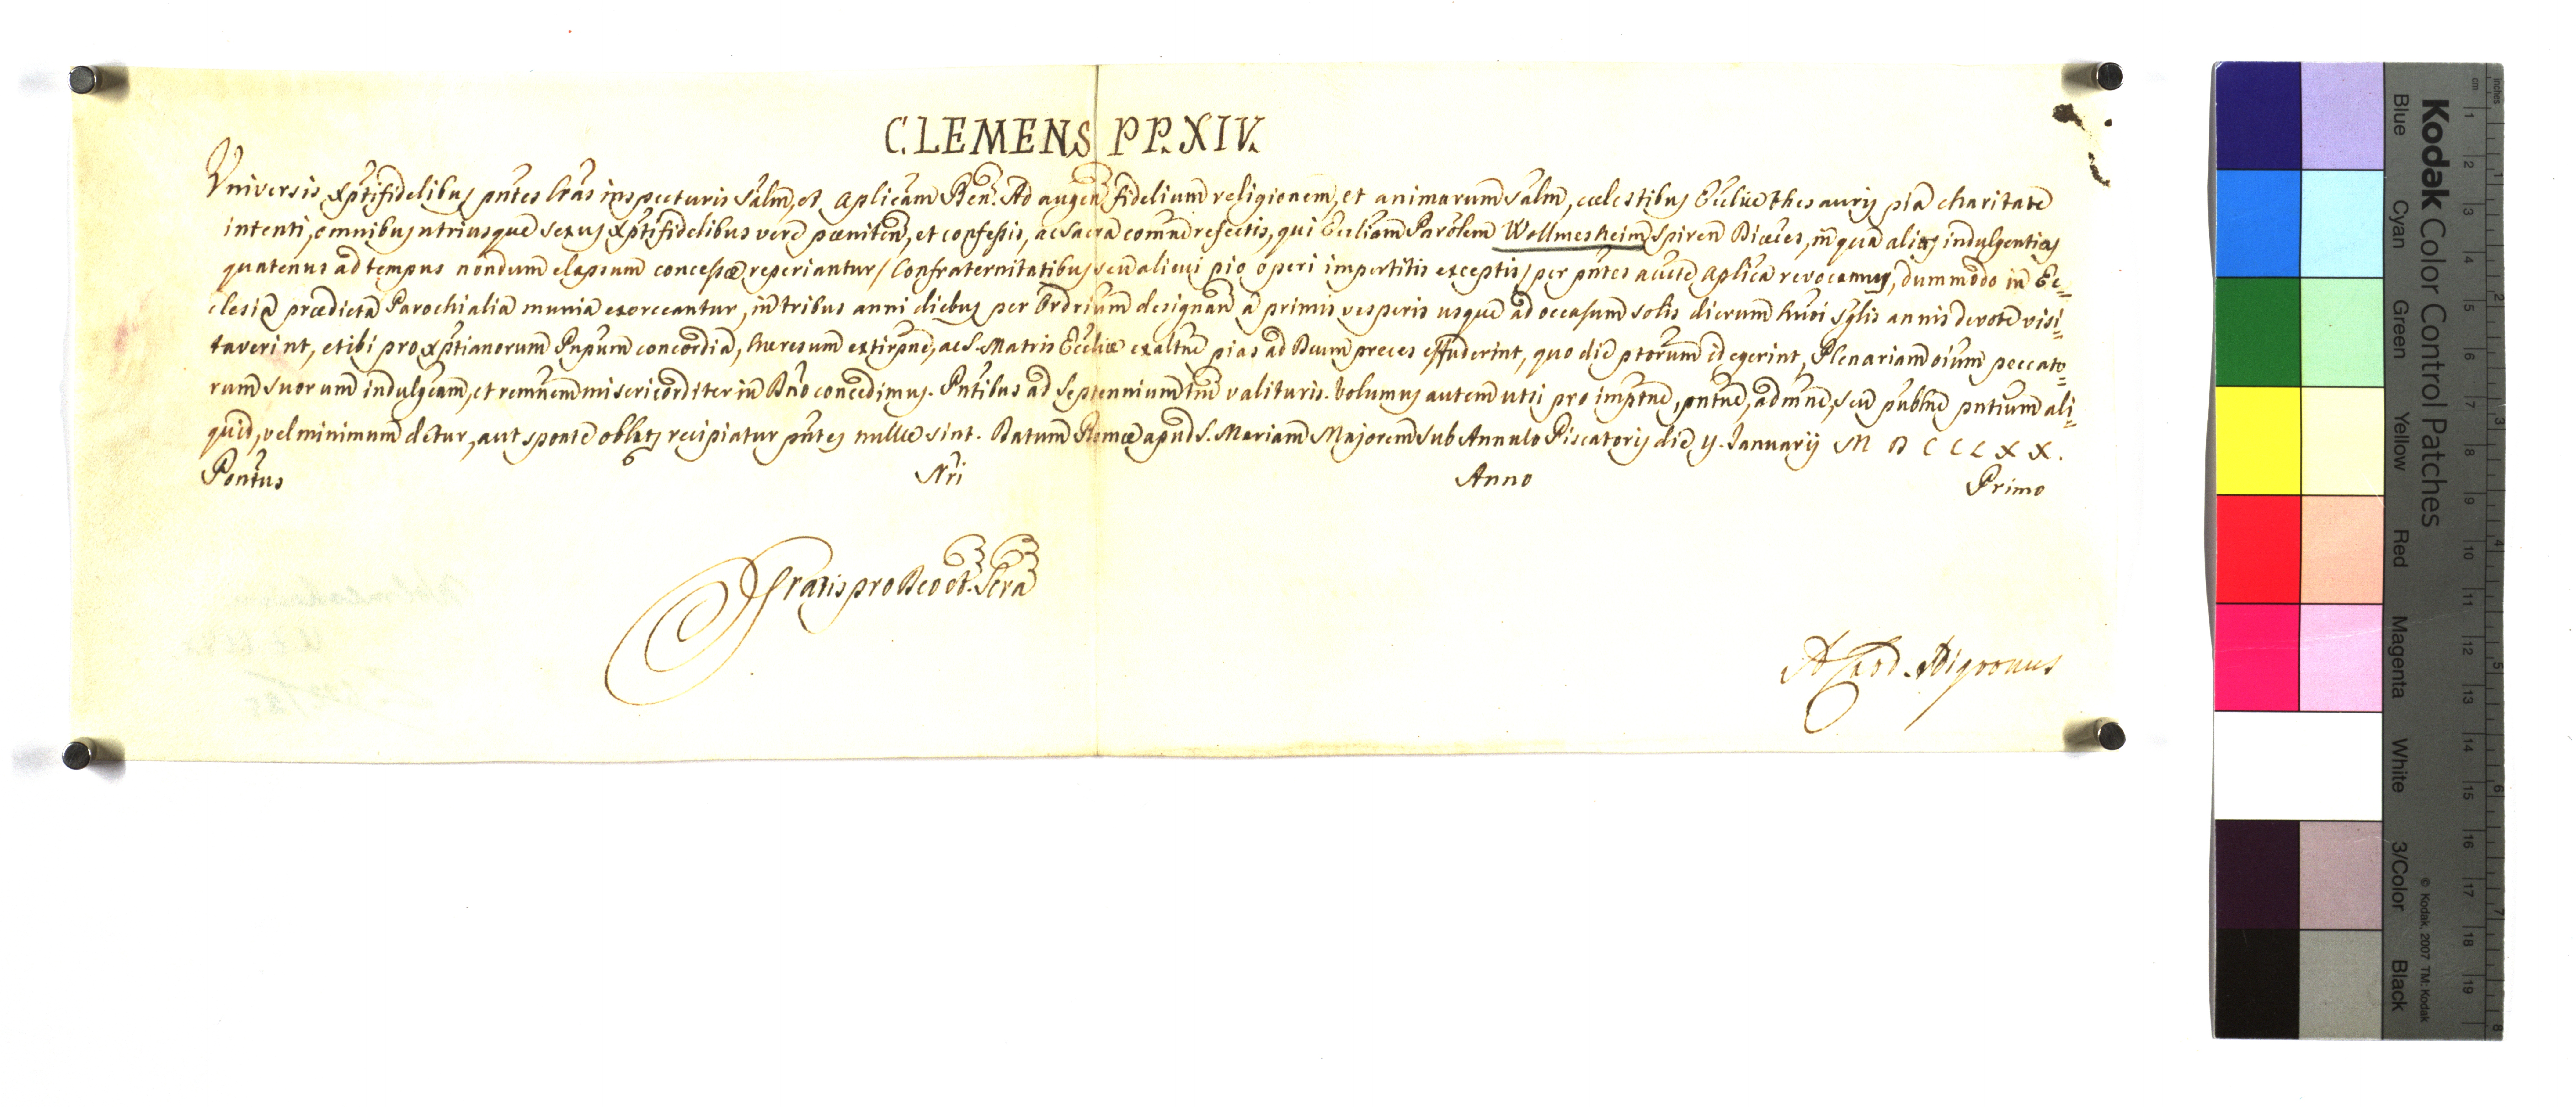 CLEMENS PP. XIV.
Universis Xptifidelibus pntes lras inspecturis salm, et Aplicam Ben. Ad augen fidelium religionem, et animarum salm, cœlestibus Ecclìæ thesauris pia charitate
intenti, omnibus utriusque sexus Xptifidelibus vere pœniten, et confessis, ac Sacra comne refectis, qui Eccliam Parolem Wollmesheim Spiren Diœces, in qua aliæ indulgentiæ
quatenus ad tempus nondum elapsum concessæ reperiantur / Confraternitatibus seu alicui pio operi impertitis exceptis / per pntes aucte Aplica revocamus, dummodo in Ec=
clesia prædicta Parochialia munia exerceantur, in tribus anni diebus per Ordrium designan a primis vesperis usque ad occasum solis dierum huoi sglis annis devote visi=
taverint, et ibi pro Xptianorum Pnpum concordia, hæresum extirpne, ac S. Matris Eccliæ exaltne pias ad Deum preces effuderint, quo die ptorum id egerint, Plenariam oium peccato=
rum suorum indulgeam, et remnem misericorditer in Dno concedimus. Pntibus ad Septennium tm valituris. Volumus autem ut si pro imptne, pntne, admne, seu publne pntium ali=
quid, vel minimum detur, aut sponte oblatz recipiatur pntes nullæ sint. Datum Romæ apud S. Mariam Majorem sub Annulo Piscatoris die y. Januarij M D C C L X X.
Pontus Nri Anno Primo
Gratis pro Deo et Scra
A Card. Nigronus
Kodak Color Control Patches
Blue Cyan Green Yellow Red Magenta White 3/Color Black
© Kodak, 2007 TM: Kodak
cm 1 2 3 4 5 6 7 8 9 10 11 12 13 14 15 16 17 18 19
inches 1 2 3 4 5 6 7 8